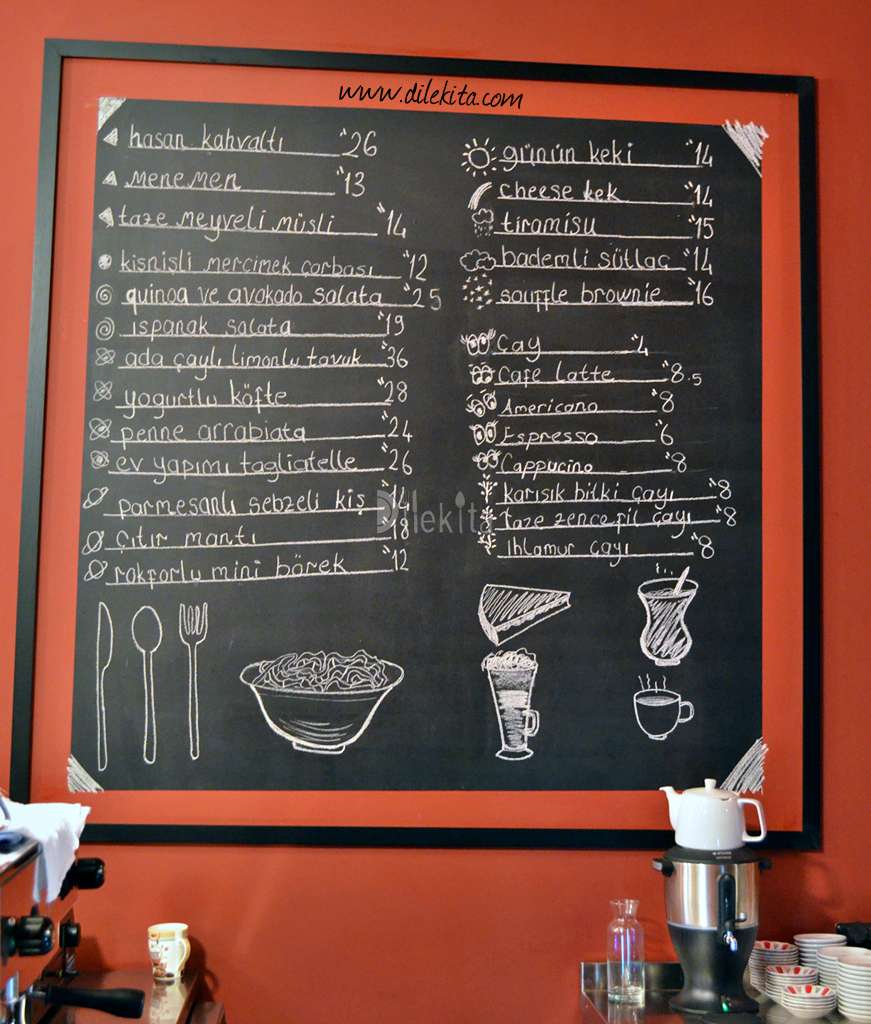 www.dilekita.com
hasan kahvaltı 26
menemen 13
taze meyveli müsli 14
kişnişli mercimek çorbası 12
quinoa ve avokado salata 25
ıspanak salata 19
ada çaylı limonlu tavuk 36
yogurtlu köfte 28
penne arrabiata 24
ev yapımı tagliatelle 26
parmesanlı sebzeli kiş 14
çıtır mantı 18
rokforlu mini börek 12
günün keki 14
cheese kek 14
tiramisu 15
bademli sütlaç 14
souffle brownie 16
Çay 4
Cafe latte 8.5
Americano 8
Espresso 6
Cappucino 8
karışık bitki çayı 8
taze zencefil çayı 8
Ihlamur çayı 8
Dilekita